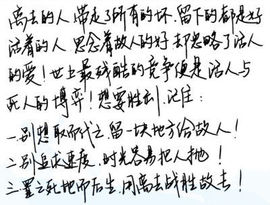 离去的人 带走了所有的坏,留下的都是好
活着的人 思念着故人的好 却忽略了活人
的爱!世上最残酷的竞争便是活人与
死人的博弈!想要胜利,记住:
一别想取而代之,留一块地方给故人!
二别追求速度,时光容易把人抛!
三置之死地而后生,用离去战胜故去!